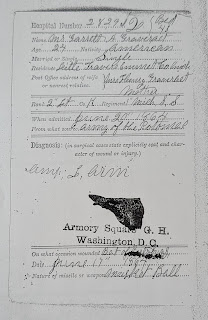 Hospital Number 2828
Name Mr. Garrett A. Graveraet
Age 24 Nativity American
Married or Single Single
Residence
Post Office address of wife
or nearest relative:
Rank 2" Lt Co. K Regiment Mich S.S
When admitted June 20" 1864
From what source Army of the Potomac
Diagnosis: (in surgical cases state explicitly seat and
character of wound or injury.)
Amp. L. Arm
Armory Square G. H.
Washington, D. C.
On what occasion wounded
Date June 17" 1864
Nature of missile or weapon Ball